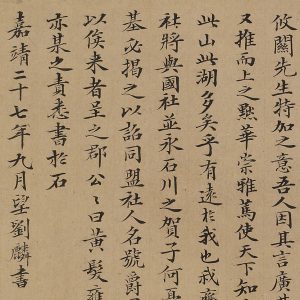 攸關先生特加之意吾人因其言廣
又推而上之黜華崇雅篤使天下知
此山此湖多矣乎有遠於我也哉
社將與國社並永石川之賀子何
基必揭之以詔同盟社人名號爵
以俟來者呈之郡公〻曰黃髮
亦某之責悉書於石
嘉靖二十七年九月望劉麟書